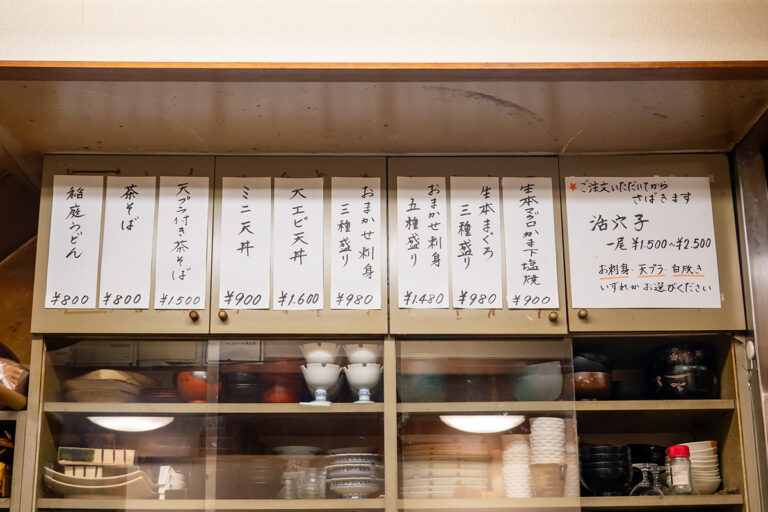 ★ご注文いただいてから
さばきます
活穴子
一尾 ¥1.500〜¥2.500
お刺身・天プラ・白焼き
いずれかお選びください
生本マグロかま下塩焼
¥900
生本まぐろ
三種盛り
¥980
おまかせ刺身
五種盛り
¥1.480
おまかせ刺身
三種盛り
¥980
大エビ天丼
¥1.600
ミニ天丼
¥900
天プラ付き茶そば
¥1500
茶そば
¥800
稲庭うどん
¥800